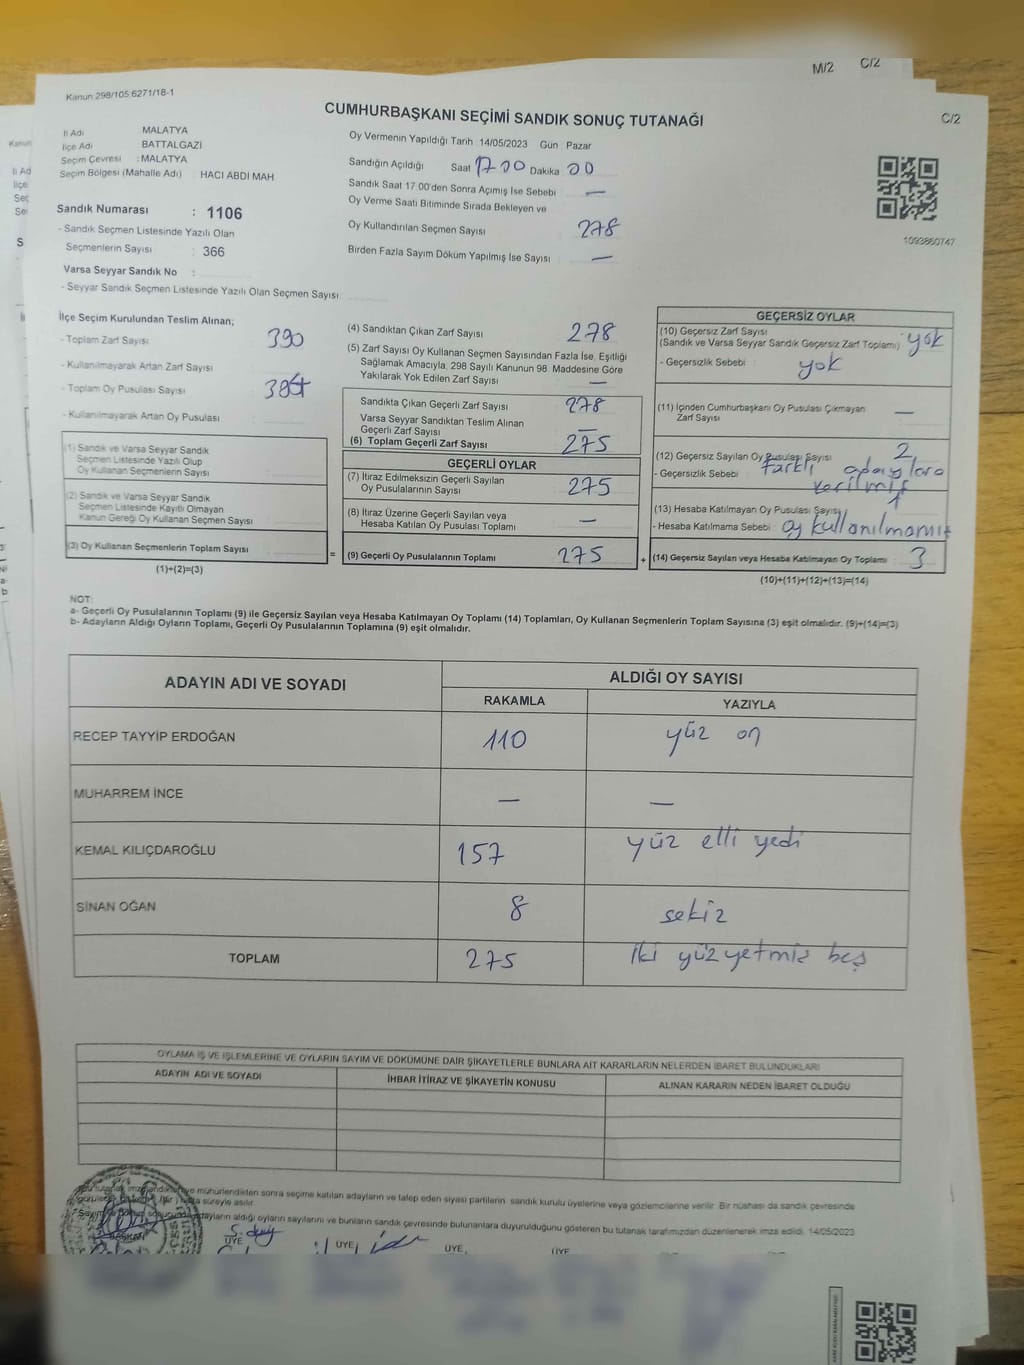 M/2
C/2
Kanun 298/105 6271/18-1
C/2
CUMHURBAŞKANI SEÇİMİ SANDIK SONUÇ TUTANAĞI
İl Adı MALATYA
İlçe Adı BATTALGAZİ
Seçim Çevresi : MALATYA
Seçim Bölgesi (Mahalle Adı) HACI ABDI MAH
Sandık Numarası : 1106
- Sandık Seçmen Listesinde Yazılı Olan
Seçmenlerin Sayısı : 366
Varsa Seyyar Sandık No :
- Seyyar Sandık Seçmen Listesinde Yazılı Olan Seçmen Sayısı
Oy Vermenin Yapıldığı Tarih 14/05/2023 Gün Pazar
Sandığın Açıldığı Saat 17 00 Dakika 00
Sandık Saat 17.00'den Sonra Açımış İse Sebebi —
Oy Verme Saati Bitiminde Sırada Bekleyen ve
Oy Kullandırılan Seçmen Sayısı 278
Birden Fazla Sayım Döküm Yapılmış İse Sayısı —
1093860747
İlçe Seçim Kurulundan Teslim Alınan;
- Toplam Zarf Sayısı 390
- Kullanılmayarak Artan Zarf Sayısı
- Toplam Oy Pusulası Sayısı
- Kullanılmayarak Artan Oy Pusulası
(1) Sandık ve Varsa Seyyar Sandık
Seçmen Listesinde Yazılı Olup
Oy Kullanan Seçmenlerin Sayısı
(2) Sandık ve Varsa Seyyar Sandık
Seçmen Listesinde Kayıtlı Olmayan
Kanun Gereği Oy Kullanan Seçmen Sayısı
(3) Oy Kullanan Seçmenlerin Toplam Sayısı
(1)+(2)=(3)
(4) Sandıktan Çıkan Zarf Sayısı 278
(5) Zarf Sayısı Oy Kullanan Seçmen Sayısından Fazla İse, Eşitliği
Sağlamak Amacıyla, 298 Sayılı Kanunun 98. Maddesine Göre
Yakılarak Yok Edilen Zarf Sayısı —
Sandıkta Çıkan Geçerli Zarf Sayısı 278
Varsa Seyyar Sandıktan Teslim Alınan
Geçerli Zarf Sayısı —
(6) Toplam Geçerli Zarf Sayısı 275
GEÇERLİ OYLAR
(7) İtiraz Edilmeksizin Geçerli Sayılan
Oy Pusulalarının Sayısı 275
(8) İtiraz Üzerine Geçerli Sayılan veya
Hesaba Katılan Oy Pusulası Toplamı —
= (9) Geçerli Oy Pusulalarının Toplamı 275
GEÇERSİZ OYLAR
(10) Geçersiz Zarf Sayısı
(Sandık ve Varsa Seyyar Sandık Geçersiz Zarf Toplamı) yok
- Geçersizlik Sebebi : yok
(11) İçinden Cumhurbaşkanı Oy Pusulası Çıkmayan
Zarf Sayısı —
(12) Geçersiz Sayılan Oy Pusulası Sayısı 2
- Geçersizlik Sebebi : farklı adaylara
verilmiş
(13) Hesaba Katılmayan Oy Pusulası Sayısı 1
- Hesaba Katılmama Sebebi : oy kullanılmamış
+ (14) Geçersiz Sayılan veya Hesaba Katılmayan Oy Toplamı 3
(10)+(11)+(12)+(13)=(14)
NOT:
a- Geçerli Oy Pusulalarının Toplamı (9) ile Geçersiz Sayılan veya Hesaba Katılmayan Oy Toplamı (14) Toplamları, Oy Kullanan Seçmenlerin Toplam Sayısına (3) eşit olmalıdır. (9)+(14)=(3)
b- Adayların Aldığı Oyların Toplamı, Geçerli Oy Pusulalarının Toplamına (9) eşit olmalıdır.
ADAYIN ADI VE SOYADI
ALDIĞI OY SAYISI
RAKAMLA YAZIYLA
RECEP TAYYİP ERDOĞAN 110 yüz on
MUHARREM İNCE — —
KEMAL KILIÇDAROĞLU 157 yüz elli yedi
SİNAN OĞAN 8 sekiz
TOPLAM 275 iki yüz yetmiş beş
OYLAMA İŞ VE İŞLEMLERİNE VE OYLARIN SAYIM VE DÖKÜMÜNE DAİR ŞİKAYETLERLE BUNLARA AİT KARARLARIN NELERDEN İBARET BULUNDUKLARI
ADAYIN ADI VE SOYADI İHBAR İTİRAZ VE ŞİKAYETİN KONUSU ALINAN KARARIN NEDEN İBARET OLDUĞU
mühürlendikten sonra seçime katılan adayların ve talep eden siyasi partilerin sandık kurulu üyelerine veya gözlemcilerine verilir. Bir nüshası da sandık çevresinde
süreyle asılır.
adayların aldığı oyların sayılarını ve bunların sandık çevresinde bulunanlara duyurulduğunu gösteren bu tutanak tarafımızdan düzenlenerek imza edildi. 14/05/2023
BAŞKAN ÜYE ÜYE ÜYE ÜYE